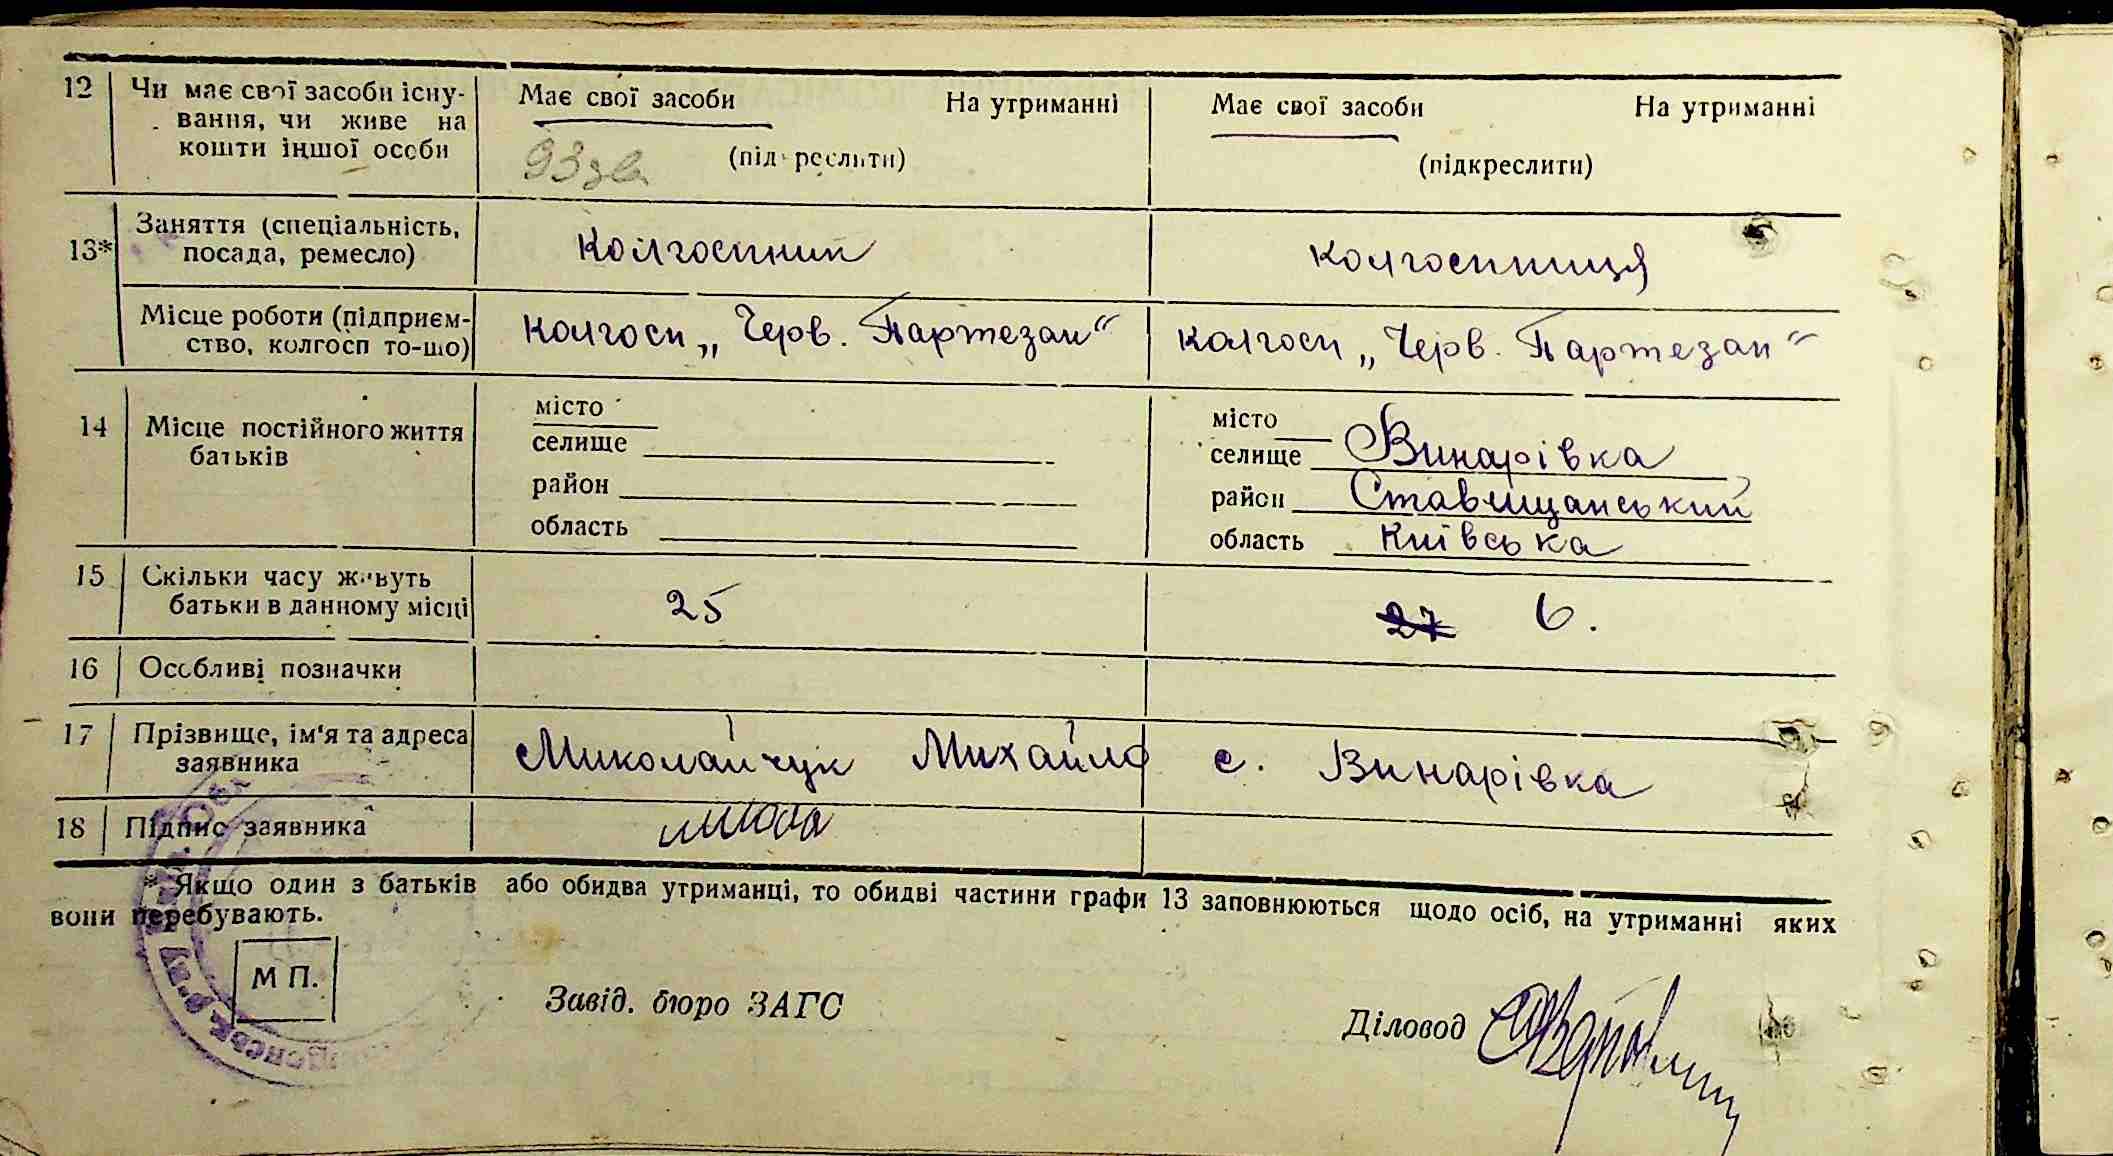 12 Чи має свої засоби існу- Має свої засоби На утриманні Має свої засоби На утриманні
вання, чи живе на
кошти іншої особи (підкреслити) (підкреслити)
13* Заняття (спеціальність, посада, ремесло) Колгоспник колгоспниця
Місце роботи (підприєм- Колгосп „Черв. Партезан“ Колгосп „Черв. Партезан“
ство, колгосп то-що)
14 Місце постійного життя батьків
місто
селище
район
область
місто
селище Винарівка
район Ставищанський
область Київська
15 Скільки часу живуть
батьки в данному місці 25 27 6.
16 Особливі позначки
17 Прізвище, ім'я та адреса Миколайчук Михайло с. Винарівка
заявника
18 Підпис заявника
* Якщо один з батьків або обидва утриманці, то обидві частини графи 13 заповнюються щодо осіб, на утриманні яких
вони перебувають.
М П.
Завід. бюро ЗАГС
Діловод